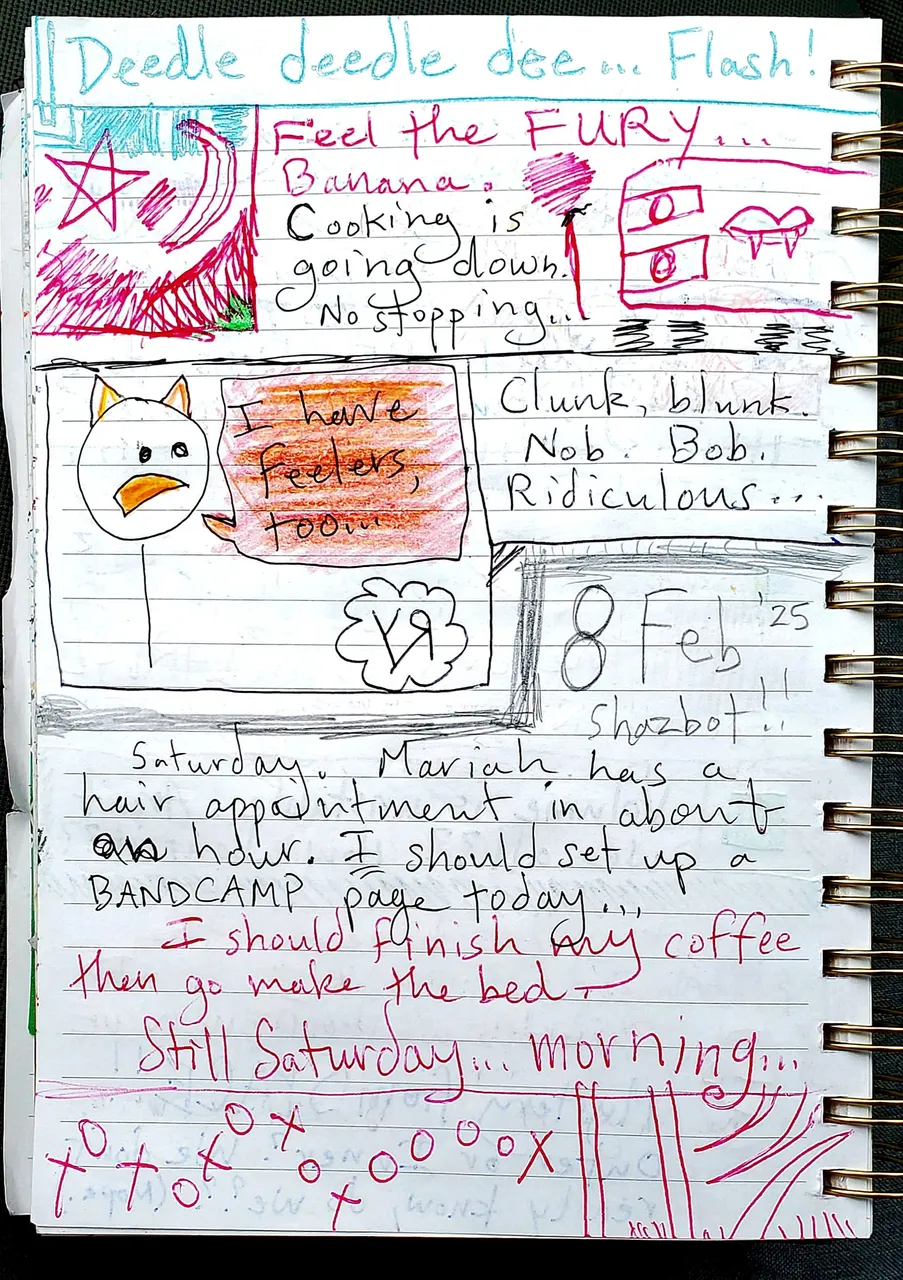 Deedle deedle dee... Flash!
Feel the FURY...
Banana.
Cooking is
going down.
No stopping...
I have
feelers,
too...
Clunk, blunk.
Nob. Bob.
Ridiculous...
8 Feb '25
Shazbot!!
Saturday. Mariah has a
hair appointment in about
an hour. I should set up a
BANDCAMP page today...
I should finish my coffee
then go make the bed.
Still Saturday... morning...